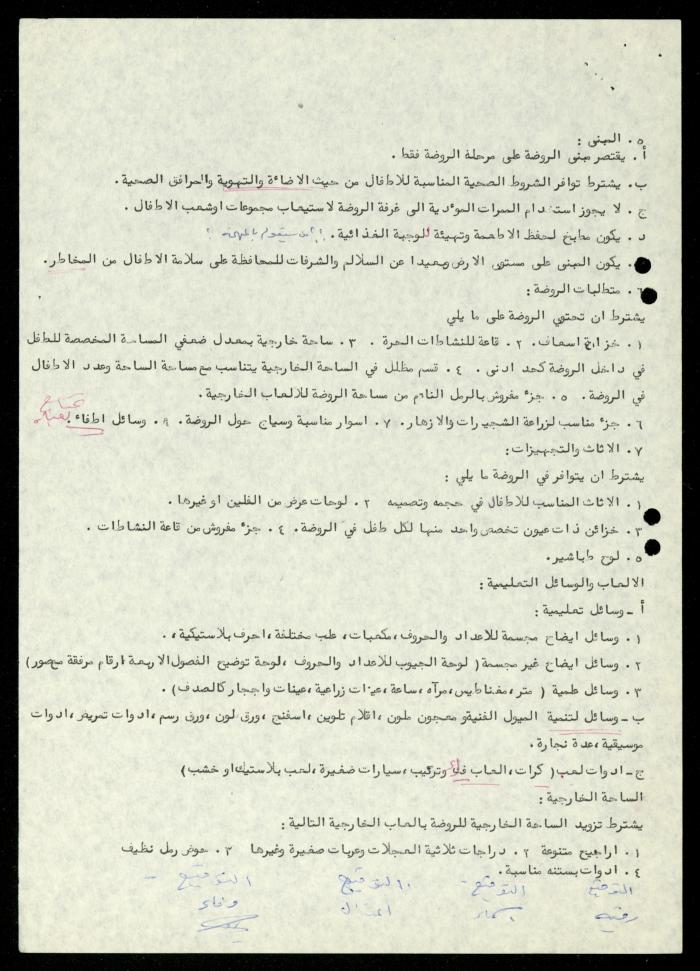 ٥. المبنى :
أ. يقتصر مبنى الروضة على مرحلة الروضة فقط.
ب. يشترط توافر الشروط الصحية المناسبة للاطفال من حيث الاضاءة والتهوية والمرافق الصحية.
ج. لا يجوز استخدام الممرات المؤدية الى غرفة الروضة لاستيعاب مجموعات اوشعب الاطفال .
د. يكون مطبخ لحفظ الاطعمة وتهيئة للوجبة الغذائية. من سيقوم بالمهمة ؟
يكون المبنى على مستوى الارض وبعيدا عن السلالم والشرفات للمحافظة على سلامة الاطفال من المخاطر.
٦. متطلبات الروضة:
يشترط ان تحتوي الروضة على ما يلي
١. خزانة اسعاف. ٢. قاعة للنشاطات الحرة . ٣. ساحة خارجية بمعدل ضعفي المساحة المخصصة للطفل
في داخل الروضة كحد ادنى . ٤. قسم مظلل في الساحة الخارجية يتناسب مع مساحة الساحة وعدد الاطفال
في الروضة. ٥. جزء مفروش بالرمل الناعم من مساحة الروضة للالعاب الخارجية.
٦. جزء مناسب لزراعة الشجيرات والازهار. ٧. اسوار مناسبة وسياج حول الروضة. ٨. وسائل اطفاء.
٧. الاثاث والتجهيزات:
يشترط ان يتوافر في الروضة ما يلي :
١. الاثاث المناسب للاطفال في حجمه وتصميمه ٢. لوحات عرض من الفلين او غيرها.
٣. خزائن ذات عيون تخصص واحد منها لكل طفل في الروضة. ٤. جزء مفروش من قاعة النشاطات .
٥. لوح طباشير.
الالعاب والوسائل التعليمية:
أ - وسائل تعليمية:
١. وسائل ايضاح مجسمة للاعداد والحروف، مكعبات، علب مختلفة، احرف بلاستيكية،.
٢. وسائل ايضاح غير مجسمة( لوحة الجيوب للاعداد والحروف ،لوحة توضيح الفصول الاربعة ارقام مرفقة مصور)
٣. وسائل علمية ( متر، مغناطيس، مرآه، ساعة، عينات زراعية، عينات واحجار كالصدف) .
ب- وسائل لتنمية الميول الفنية و معجون ملون، اقلام تلوين، اسفنج، ورق لون، ورق رسم، ادوات تمريض، ادوات
موسيقية، عدة نجارة.
ج- ادوات لعب( كرات، العاب فك وتركيب، سيارات صغيرة، لعب بلاستيك او خشب)
الساحة الخارجية:
يشترط تزويد الساحة الخارجية للروضة بالعاب الخارجية التالية:
١. اراجيح متنوعة ٢. دراجات ثلاثية العجلات وعربات صغيرة وغيرها ٣. حوض رمل نظيف
٤. ادوات بستنه مناسبة.
التوقيع التوقيع التوقيع التوقيع